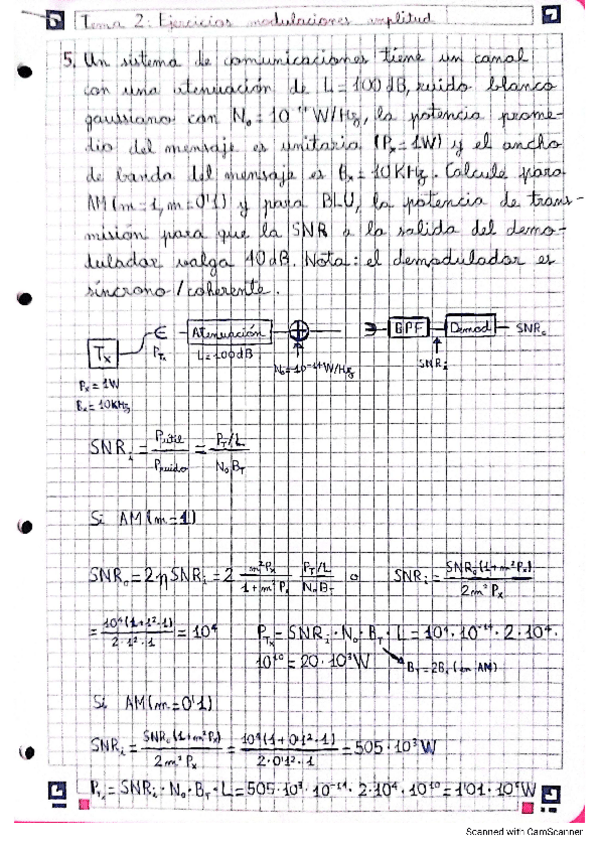 Tema 2: Ejercicios modulaciones amplitud
5. Un sistema de comunicaciones tiene un canal
con una atenuación de L=100dB, ruido blanco
gaussiano con N₀=10⁻¹⁴ W/Hz, la potencia prome-
dio del mensaje es unitaria (Pₓ=1W) y el ancho
de banda del mensaje es Bₓ=10KHz. Calcule para
AM(m=1, m=0'1) y para BLU, la potencia de trans-
misión para que la SNR a la salida del demo-
dulador valga 40dB. Nota: el demodulador es
síncrono/coherente.
Tx
P_Tx
Atenuación
L=100dB
N₀=10⁻¹⁴W/Hz
BPF
Demod
SNR₀
SNRᵢ
Pₓ=1W
Bₓ=10KHz
SNRᵢ = Pútil/Pruido = (P_T/L)/(N₀B_T)
Si AM(m=1)
SNR₀=2ηSNRᵢ=2 (m²Pₓ)/(1+m²Pₓ) (P_T/L)/(N₀B_T) o SNRᵢ=(SNR₀(1+m²Pₓ))/(2m²Pₓ)
=(10⁴(1+1²·1))/(2·1²·1)=10⁴ P_Tx=SNRᵢ·N₀·B_T·L=10⁴·10⁻¹⁴·2·10⁴·
10¹⁰=20·10³W B_T=2Bₓ (en AM)
Si AM(m=0'1)
SNRᵢ=(SNR₀(1+m²Pₓ))/(2m²Pₓ)=(10⁴(1+0'1²·1))/(2·0'1²·1)=505·10³W
P_Tx=SNRᵢ·N₀·B_T·L=505·10³·10⁻¹⁴·2·10⁴·10¹⁰=1'01·10⁶W
Scanned with CamScanner